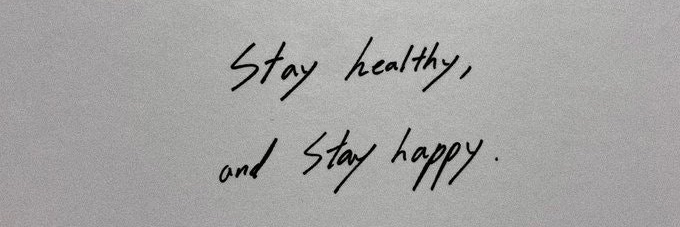 Stay healthy,
and stay happy.